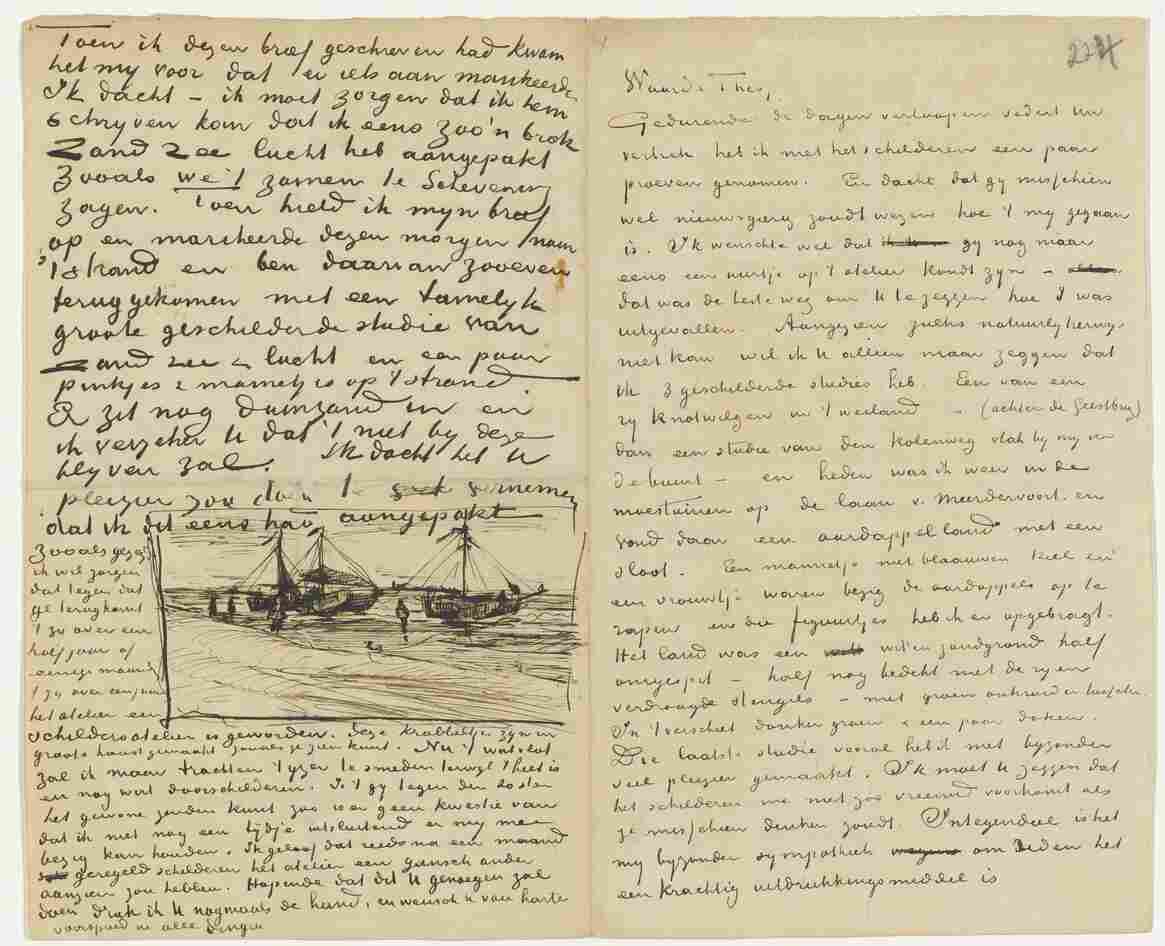 Toen ik dezen brief geschreven had kwam
het my voor dat er iets aan mankeerde
Ik dacht – ik moet zorgen dat ik hem
schryven kan dat ik eens zoo'n brok
Zand zee lucht heb aangepakt
zooals we 't zamen te Schevening
zagen. Toen hield ik myn brief
op en marcheerde dezen morgen naar
't strand en ben daarvan zooeven
teruggekomen met een tamelyk
groote geschilderde studie van
Zand zee & lucht en een paar
pinkjes & mannetjes op 't strand.
Er zit nog duinzand in en
ik verzeker U dat 't niet by deze
blyven zal. Ik dacht het U
plezier zou doen te vernemen
dat ik dit eens had aangepakt
Zooals gezegd
ik wil zorgen
dat tegen dat
ge terugkomt
't zy over een
half jaar of
eenige maand
't zy over een jaar
het atelier een
schildersatelier is geworden. Deze krabbeltjes zyn in
groote haast gemaakt zooals ge zien kunt. Nu 't wat vlot
zal ik maar trachten 't yzer te smeden terwyl 't heet is
en nog wat doorschilderen. Is 't gy tegen den 20sten
het gewone zenden kunt zoo is er geen kwestie van
dat ik niet nog een tydje uitsluitend er my mee
bezig kan houden. Ik geloof dat reeds na een maand
geregeld schilderen het atelier een gansch ander
aanzien zou hebben. Hopende dat dit U genoegen zal
doen druk ik U nogmaals de hand, en wensch U van harte
voorspoed in alle dingen
224
Waarde Theo,
Gedurende de dagen verloopen sedert uw
vertrek heb ik met het schilderen een paar
proeven genomen. En dacht dat gy misschien
wel nieuwsgierig zoudt wezen hoe 't my gegaan
is. Ik wenschte wel dat gy nog maar
eens een uurtje op 't atelier kondt zyn –
dat was de beste weg om U te zeggen hoe 't was
uitgevallen. Aangezien zulks natuurlykerwys
niet kan wil ik U alleen maar zeggen dat
ik 3 geschilderde studies heb. Een van een
ry knotwilgen in 't weiland – (achter de Geestbrug)
dan een studie van den kolenweg vlak by my in
de buurt – en heden was ik weer in de
moestuinen op de laan v. Meerdervoort en
vond daar een aardappelland met een
sloot. Een mannetje met blaauwen kiel en
een vrouwtje waren bezig de aardappels op te
rapen en die figuurtjes heb ik er opgebragt.
Het land was een witten zandgrond half
omgespit – half nog bedekt met de ryen
verdroogde stengels – met groen onkruid er tusschen.
In 't verschiet donker groen & een paar daken.
Die laatste studie vooral heb ik met byzonder
veel plezier gemaakt. Ik moet U zeggen dat
het schilderen me niet zoo vreemd voorkomt als
ge misschien denken zoudt. Integendeel is het
my byzonder sympathiek om reden het
een krachtig uitdrukkingsmiddel is